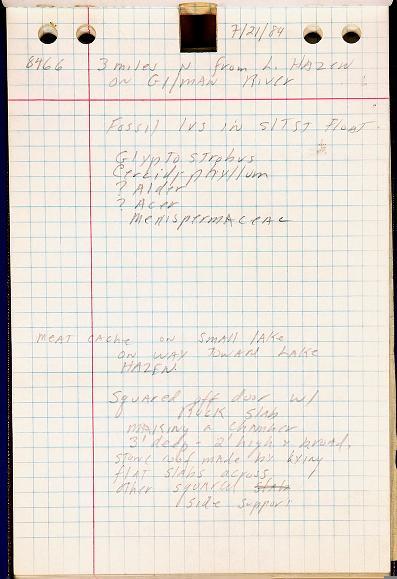 7/21/84
8466 3 miles N from L. HAZEN
on GilmAN River
Fossil lvs in sltst Float
Glyptostrobus
Cercidiphyllum
? Alder
? Acer
MenispermACEAE
MEAT CACHE on SMAll lAKE
on way TowArd LAKE
HAZEN.
Squared off door w/
Rock slab
making a chamber
3' deep - 2' high x broad.
stone roof made by lying
flat slabs across
other squared slab
side support